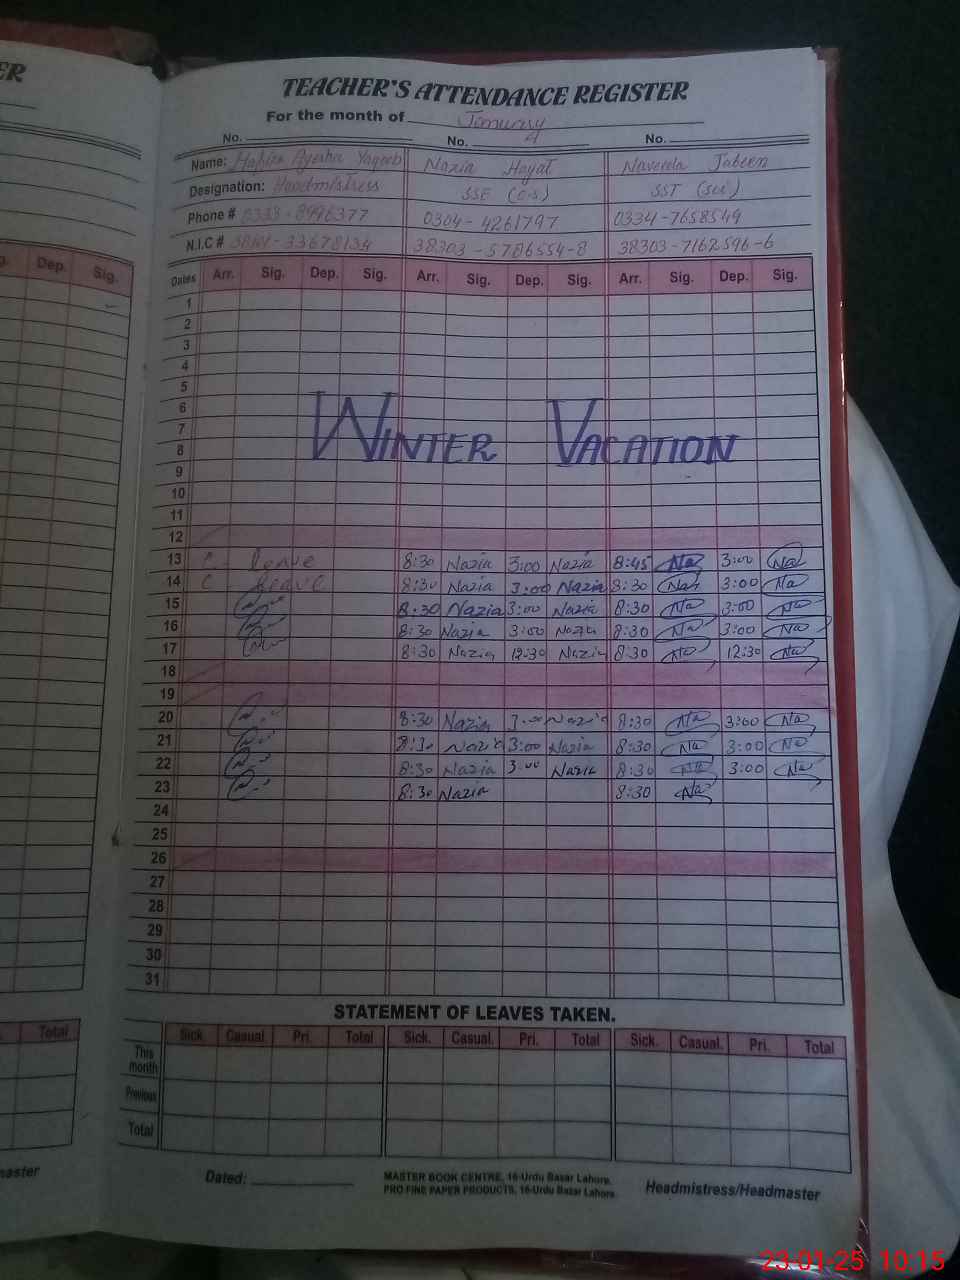 ER
TEACHER'S ATTENDANCE REGISTER
For the month of
No. No. No.
Name: Ayesha Yaqoob Nazia Hayat Naveeda Jabeen
Designation: Headmistress SSE (C.S) SST (Sci)
Phone # 0333-8996377 0304-4261797 0334-7658549
N.I.C # 38303-5786554-8 38303-7162596-6
g. Dep. Sig. Dates Arr. Sig. Dep. Sig. Arr. Sig. Dep. Sig. Arr. Sig. Dep. Sig.
1
2
3
4
5
6
7
8
WINTER VACATION
9
10
11
12
13 C. leave 8:30 Nazia 3:00 Nazia 8:45 Na 3:00 Na
14 C leave 8:30 Nazia 3:00 Nazia 8:30 Na 3:00 Na
15 8:30 Nazia 3:00 Nazia 8:30 Na 3:00 Na
16 8:30 Nazia 3:00 Nazia 8:30 Na 3:00 Na
17 8:30 Nazia 12:30 Nazia 8:30 Na 12:30 Na
18
19
20 8:30 Nazia Nazia 8:30 Na 3:00 Na
21 8:30 Nazia 3:00 Nazia 8:30 Na 3:00 Na
22 8:30 Nazia 3:00 Nazia 8:30 Na 3:00 Na
23 8:30 Nazia 8:30 Na
24
25
26
27
28
29
30
31
STATEMENT OF LEAVES TAKEN.
Total Sick. Casual. Pri. Total Sick. Casual. Pri. Total Sick. Casual. Pri. Total
This month
Previous
Total
master Dated: MASTER BOOK CENTRE, 16-Urdu Bazar Lahore. Headmistress/Headmaster
PRO FINE PAPER PRODUCTS, 16-Urdu Bazar Lahore.
23-01-25 10:15